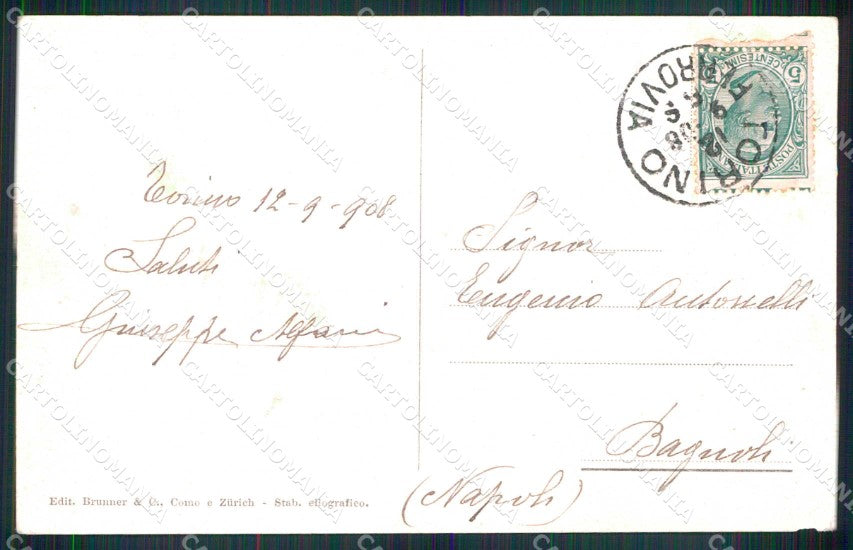 Torino 12-9-908
Saluti
Giuseppe Alfani
Edit. Brunner & C., Como e Zürich - Stab. eliografico.
TORINO FERROVIA
5
CENTESIMI
POSTE ITALIANE
Signor
Eugenio Antonelli
Bagnoli
(Napoli)
CARTOLINOMANIA